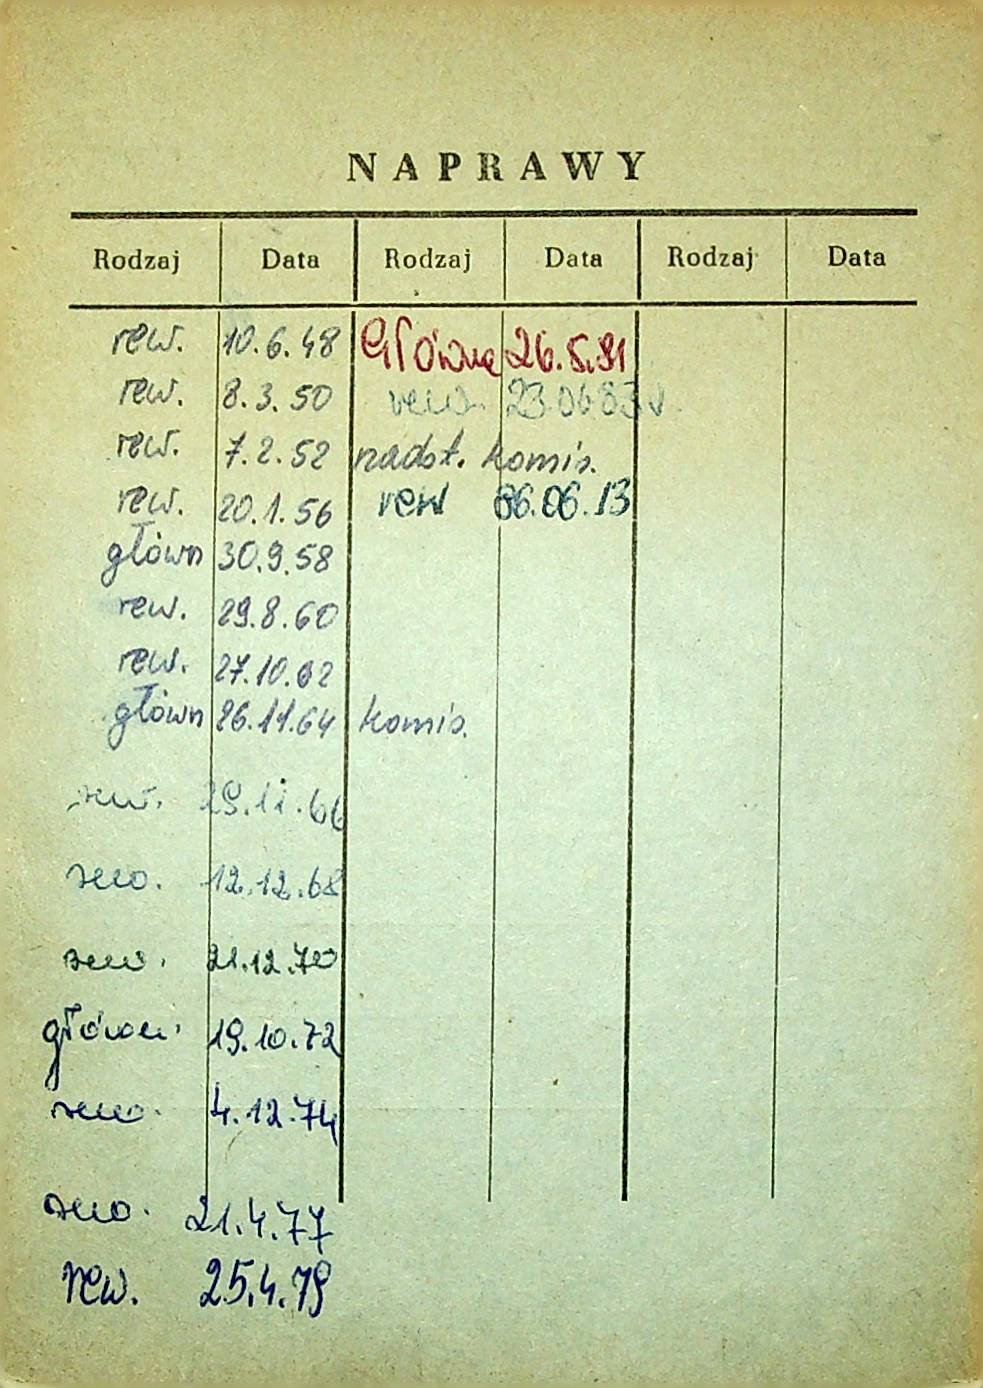 NAPRAWY
Rodzaj Data Rodzaj Data Rodzaj Data
rew. 10.6.48 Główna 26.5.81
rew. 8.3.50 rew. 23.06.83 r.
rew. 7.2.52 nadst. komis.
rew. 20.1.56 rew 86.06.13
główn 30.9.58
rew. 29.8.60
rew. 27.10.62
główn 26.11.64 komis.
rew. 29.11.66
rew. 12.12.68
rew. 21.12.70
główn. 19.10.72
rew. 4.12.74
rew. 21.4.77
rew. 25.4.79